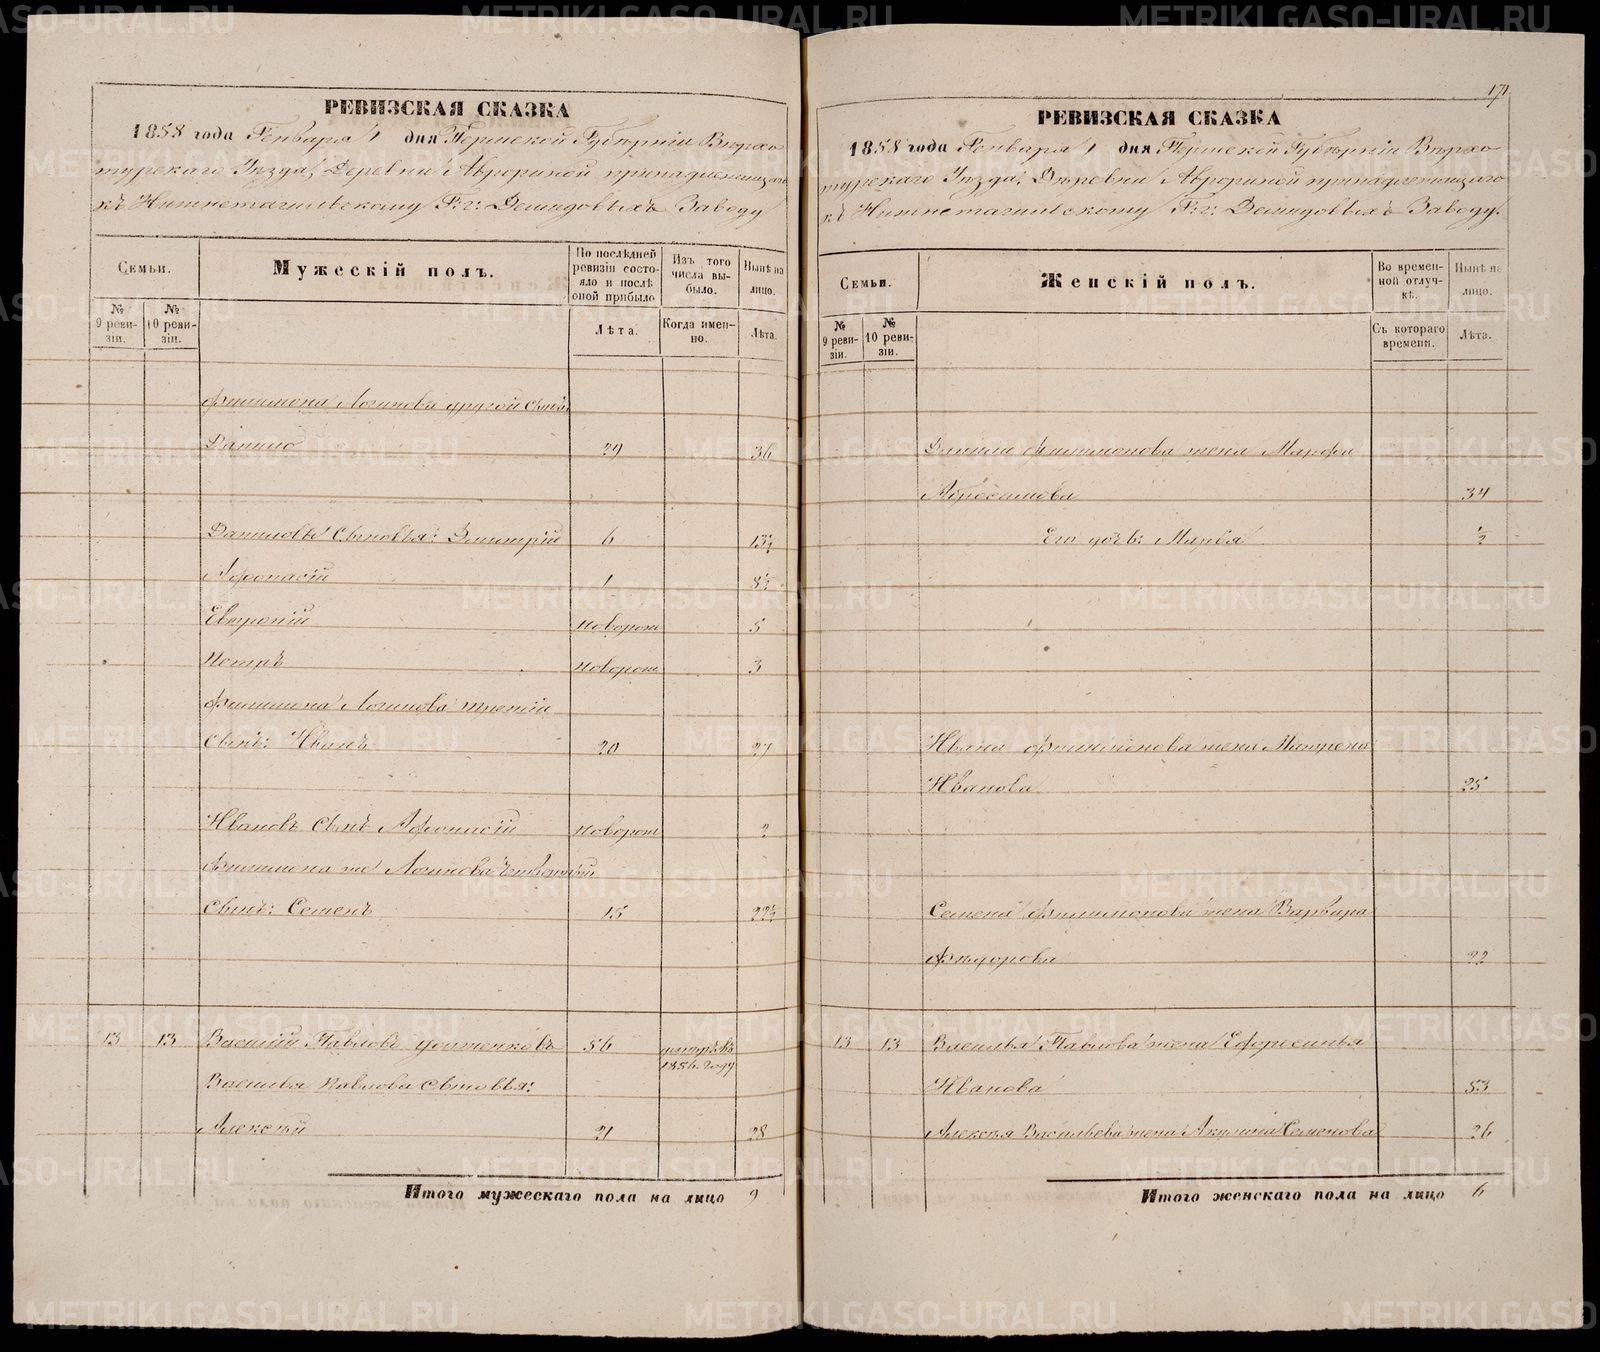 РЕВИЗСКАЯ СКАЗКА
1858 года Генваря 1 дня Пермской Губерніи Верхо
турскаго Уѣзда, Деревни Аврориной принадлежащаго
къ Нижнетагильскому Г.г. Демидовыхъ Заводу
Семьи.
Мужескій полъ.
По послѣдней ревизіи состояло и послѣ оной прибыло
Изъ того числа выбыло.
Нынѣ на лицо.
№ 9 ревизіи.
№ 10 ревизіи.
Лѣта.
Когда именно.
Лѣта.
Филимона Логинова другой сынъ
Данило 29 36
Даниловы Сыновья: Дмитрій 6 13½
Афонасій 1 8½
Евтропій новорож 5
Петръ новорож 3
Филимона Логинова третій
сынъ: Иванъ 20 27
Ивановъ сынъ Афонасій новорож 2
Филимона же Логинова четвертый
сынъ: Семенъ 15 22½
13 13 Василий Павловъ 56 умеръ въ
1856 году
Василья Павлова сыновья:
Алексѣй 21 28
Итого мужескаго пола на лицо 9
171
РЕВИЗСКАЯ СКАЗКА
1858 года Генваря 1 дня Пермской Губерніи Верхо
турскаго Уѣзда, Деревни Аврориной принадлежащаго
къ Нижнетагильскому Г.г. Демидовыхъ Заводу.
Семьи.
Женскій полъ.
Во временной отлучкѣ.
Нынѣ на лицо.
№ 9 ревизіи.
№ 10 ревизіи.
Съ котораго времени.
Лѣта.
Данила Филимонова жена Марфа
Абросимова 34
Его дочь: Марья ½
Ивана Филимонова жена Матрена
Иванова 25
Семена Филимонова жена Варвара
Федорова 22
13 13 Василья Павлова жена Ефросинья
Иванова 53
Алексѣя Васильева жена Акулина Семенова 26
Итого женскаго пола на лицо 6
METRIKI.GASO-URAL.RU